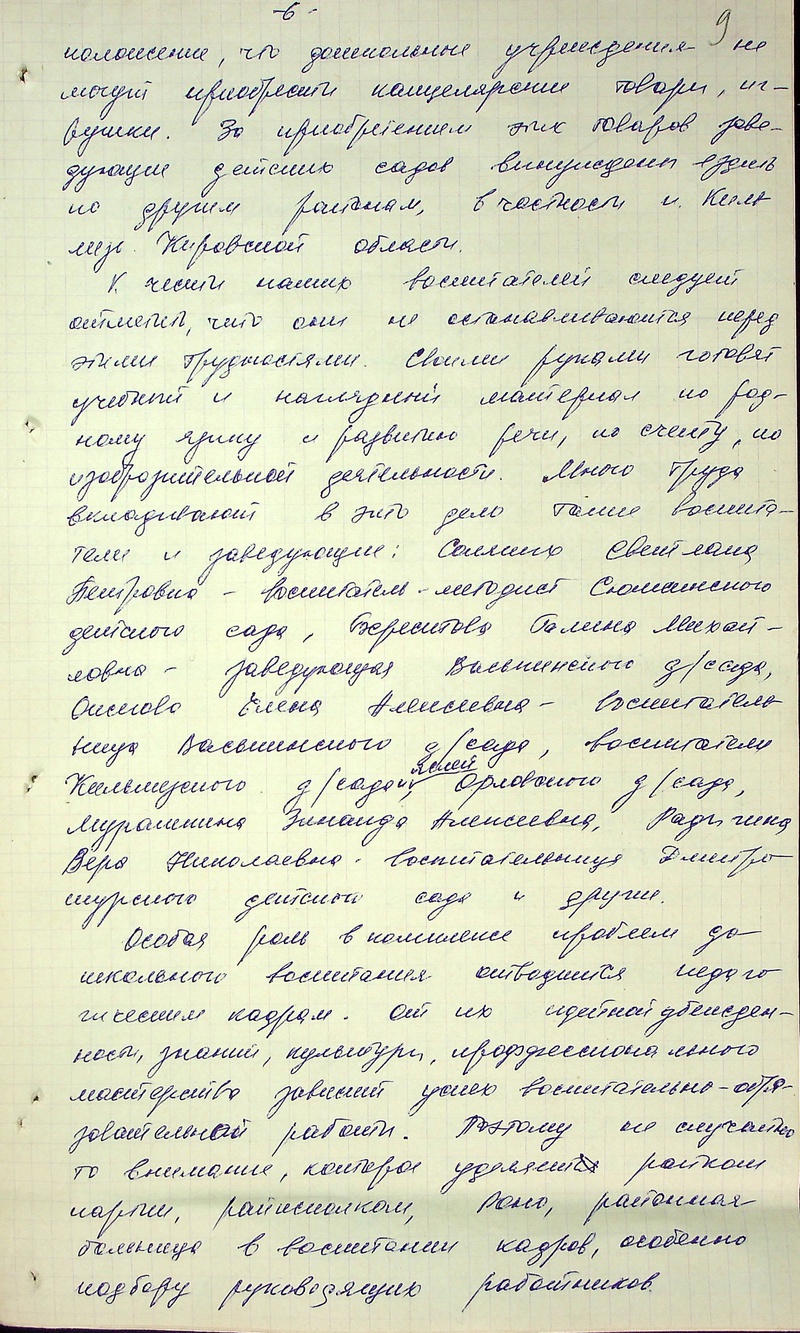 -6-
9
положение, что дошкольные учреждения не
могут приобрести канцелярские товары, иг-
рушки. За приобретением этих товаров заве-
дующие детских садов вынуждены ездить
по другим районам, в частности п. Киль
мезь Кировской области.
К чести наших воспитателей следует
отметить, что они не останавливаются перед
этими трудностями. Своими руками готовят
учебный и наглядный материал по род-
ному языку и развитию речи, по счету, по
изобразительной деятельности. Много труда
вкладывают в это дело такие воспита-
тели и заведующие: Светлана
Петровна - воспитатель-методист Сюмсинского
детского сада, Берестова Галина Михай-
ловна - заведующая Васькинского д/сада,
Елена Алексеевна - воспитатель
ница Васькинского д/сада, воспитатели
Кильмезского д/сада, яслей Орловского д/сада,
Мурашкина Зинаида Алексеевна, Радыгина
Вера Николаевна - воспитательница Дмитро
шурского детского сада и другие.
Особая роль в комплексе проблем до
школьного воспитания отводится педаго
гическим кадрам. От их идейной убежден-
ности, знаний, культуры, профессионального
мастерства зависит успех воспитательно-обра-
зовательной работы. Поэтому не случайно
то внимание, которое уделяет райком
партии, райисполком, Роно, районная
больница в воспитании кадров, особенно
подбору руководящих работников.